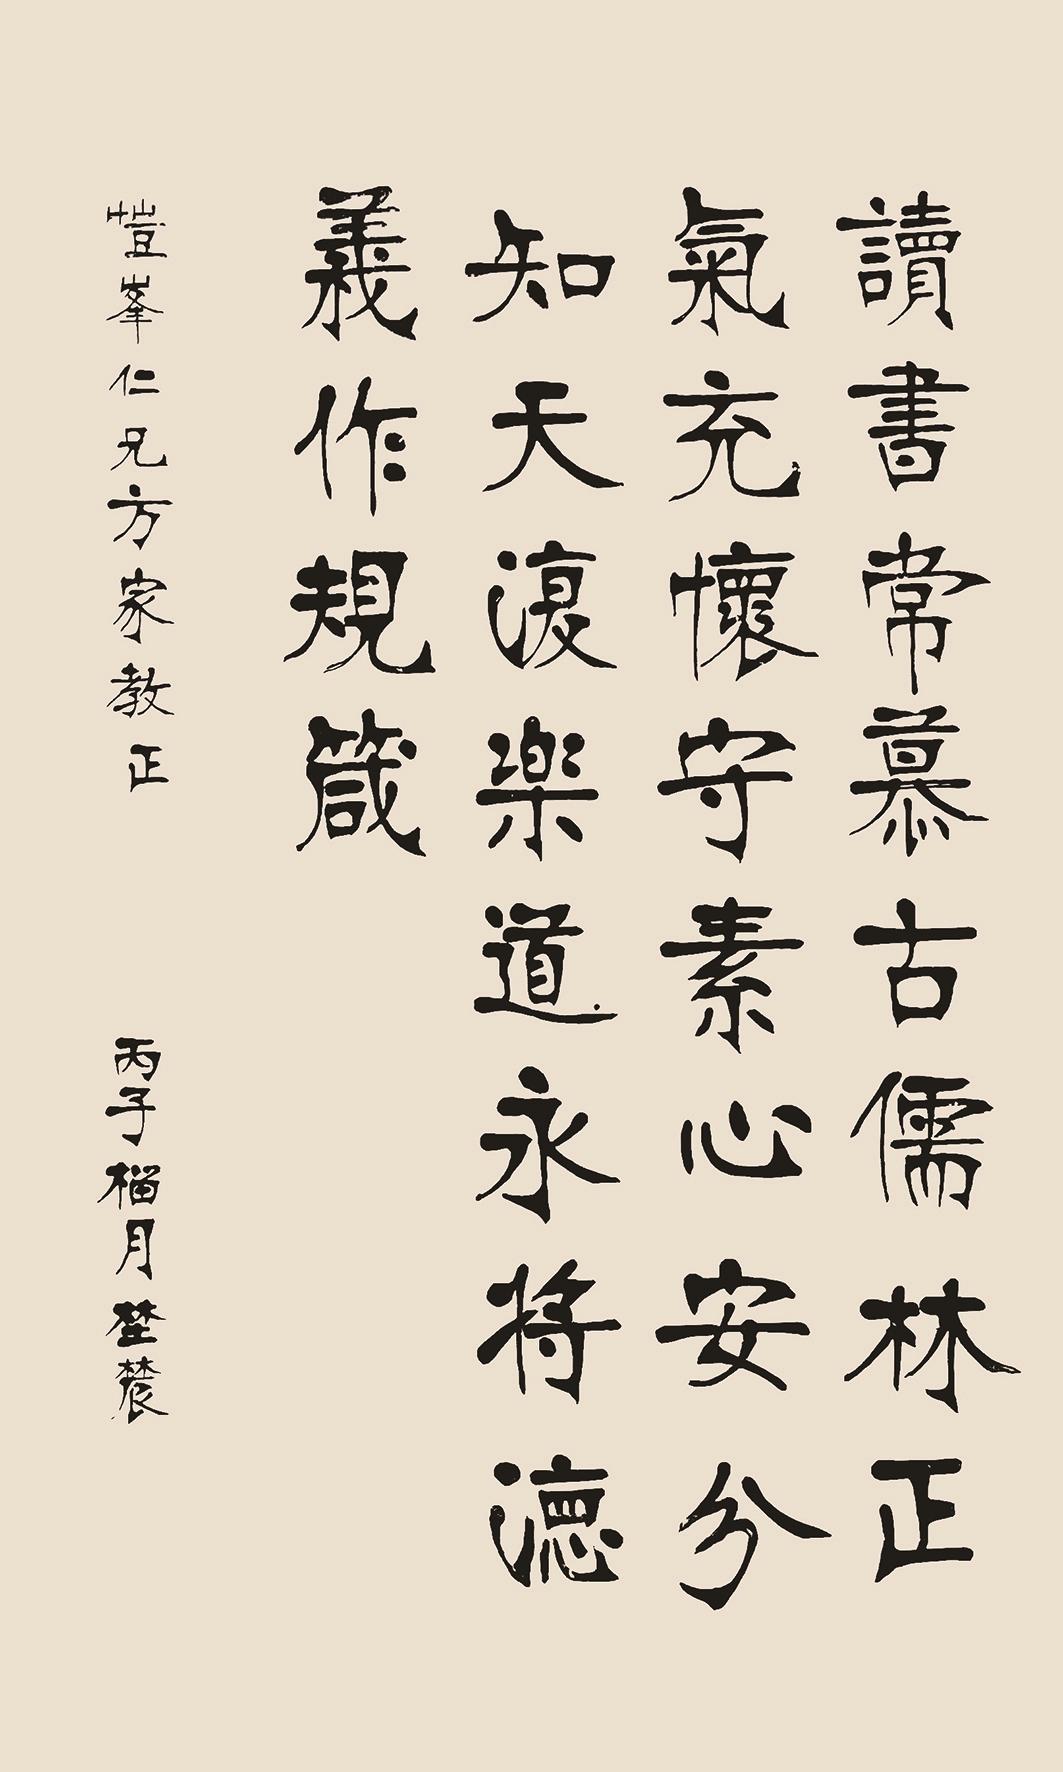 讀書常慕古儒林正
氣充懷守素心安分
知天復楽道永将德
義作規箴
愷峯仁兄方家教正
丙子榴月埜農